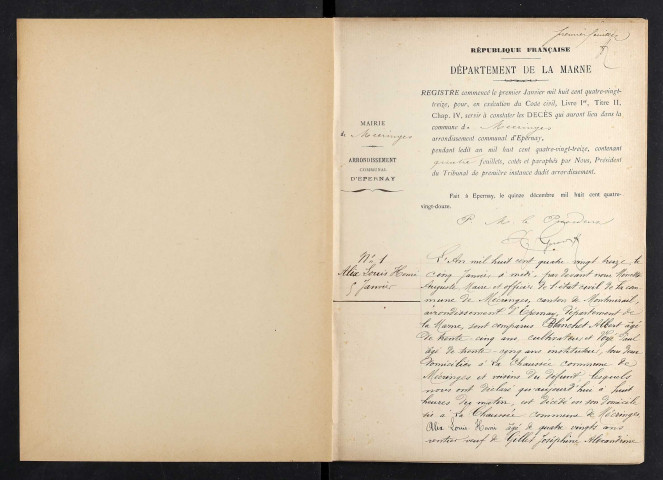 premier feuillet
RÉPUBLIQUE FRANÇAISE
DÉPARTEMENT DE LA MARNE
REGISTRE commencé le premier Janvier mil huit cent quatre-vingt-
treize, pour, en exécution du Code civil, Livre Ier, Titre II,
Chap. IV, servir à constater les DÉCÈS qui auront lieu dans la
commune de Mécringes
arrondissement communal d'Épernay,
pendant ledit an mil huit cent quatre-vingt-treize, contenant
feuillets, cotés et paraphés par Nous, Président
du Tribunal de première instance dudit arrondissement.
Fait à Épernay, le quinze décembre mil huit cent quatre-
vingt-douze.
P. M. le Président
MAIRIE
de Mécringes
ARRONDISSEMENT
COMMUNAL
D'ÉPERNAY
No 1
Alix Louis Henri
5 Janvier
L'An mil huit cent quatre vingt treize le
cinq Janvier à midi, par devant nous
Auguste Maire et officier de l'état civil de la com
mune de Mécringes, canton de Montmirail,
arrondissement d'Épernay, département de
la Marne, sont comparus Blanchet Albert âgé
de trente cinq ans, cultivateur et Paul
âgé de trente cinq ans instituteur, tous deux
domiciliés à La Chaussée commune de
Mécringes et voisins du défunt, lesquels
nous ont déclaré qu'aujourd'hui à huit
heures du matin, est décédé en son domicile
sis à La Chaussée commune de Mécringes
Alix Louis Henri âgé de quatre vingts ans
rentier veuf de Gillet Joséphine Alexandrine